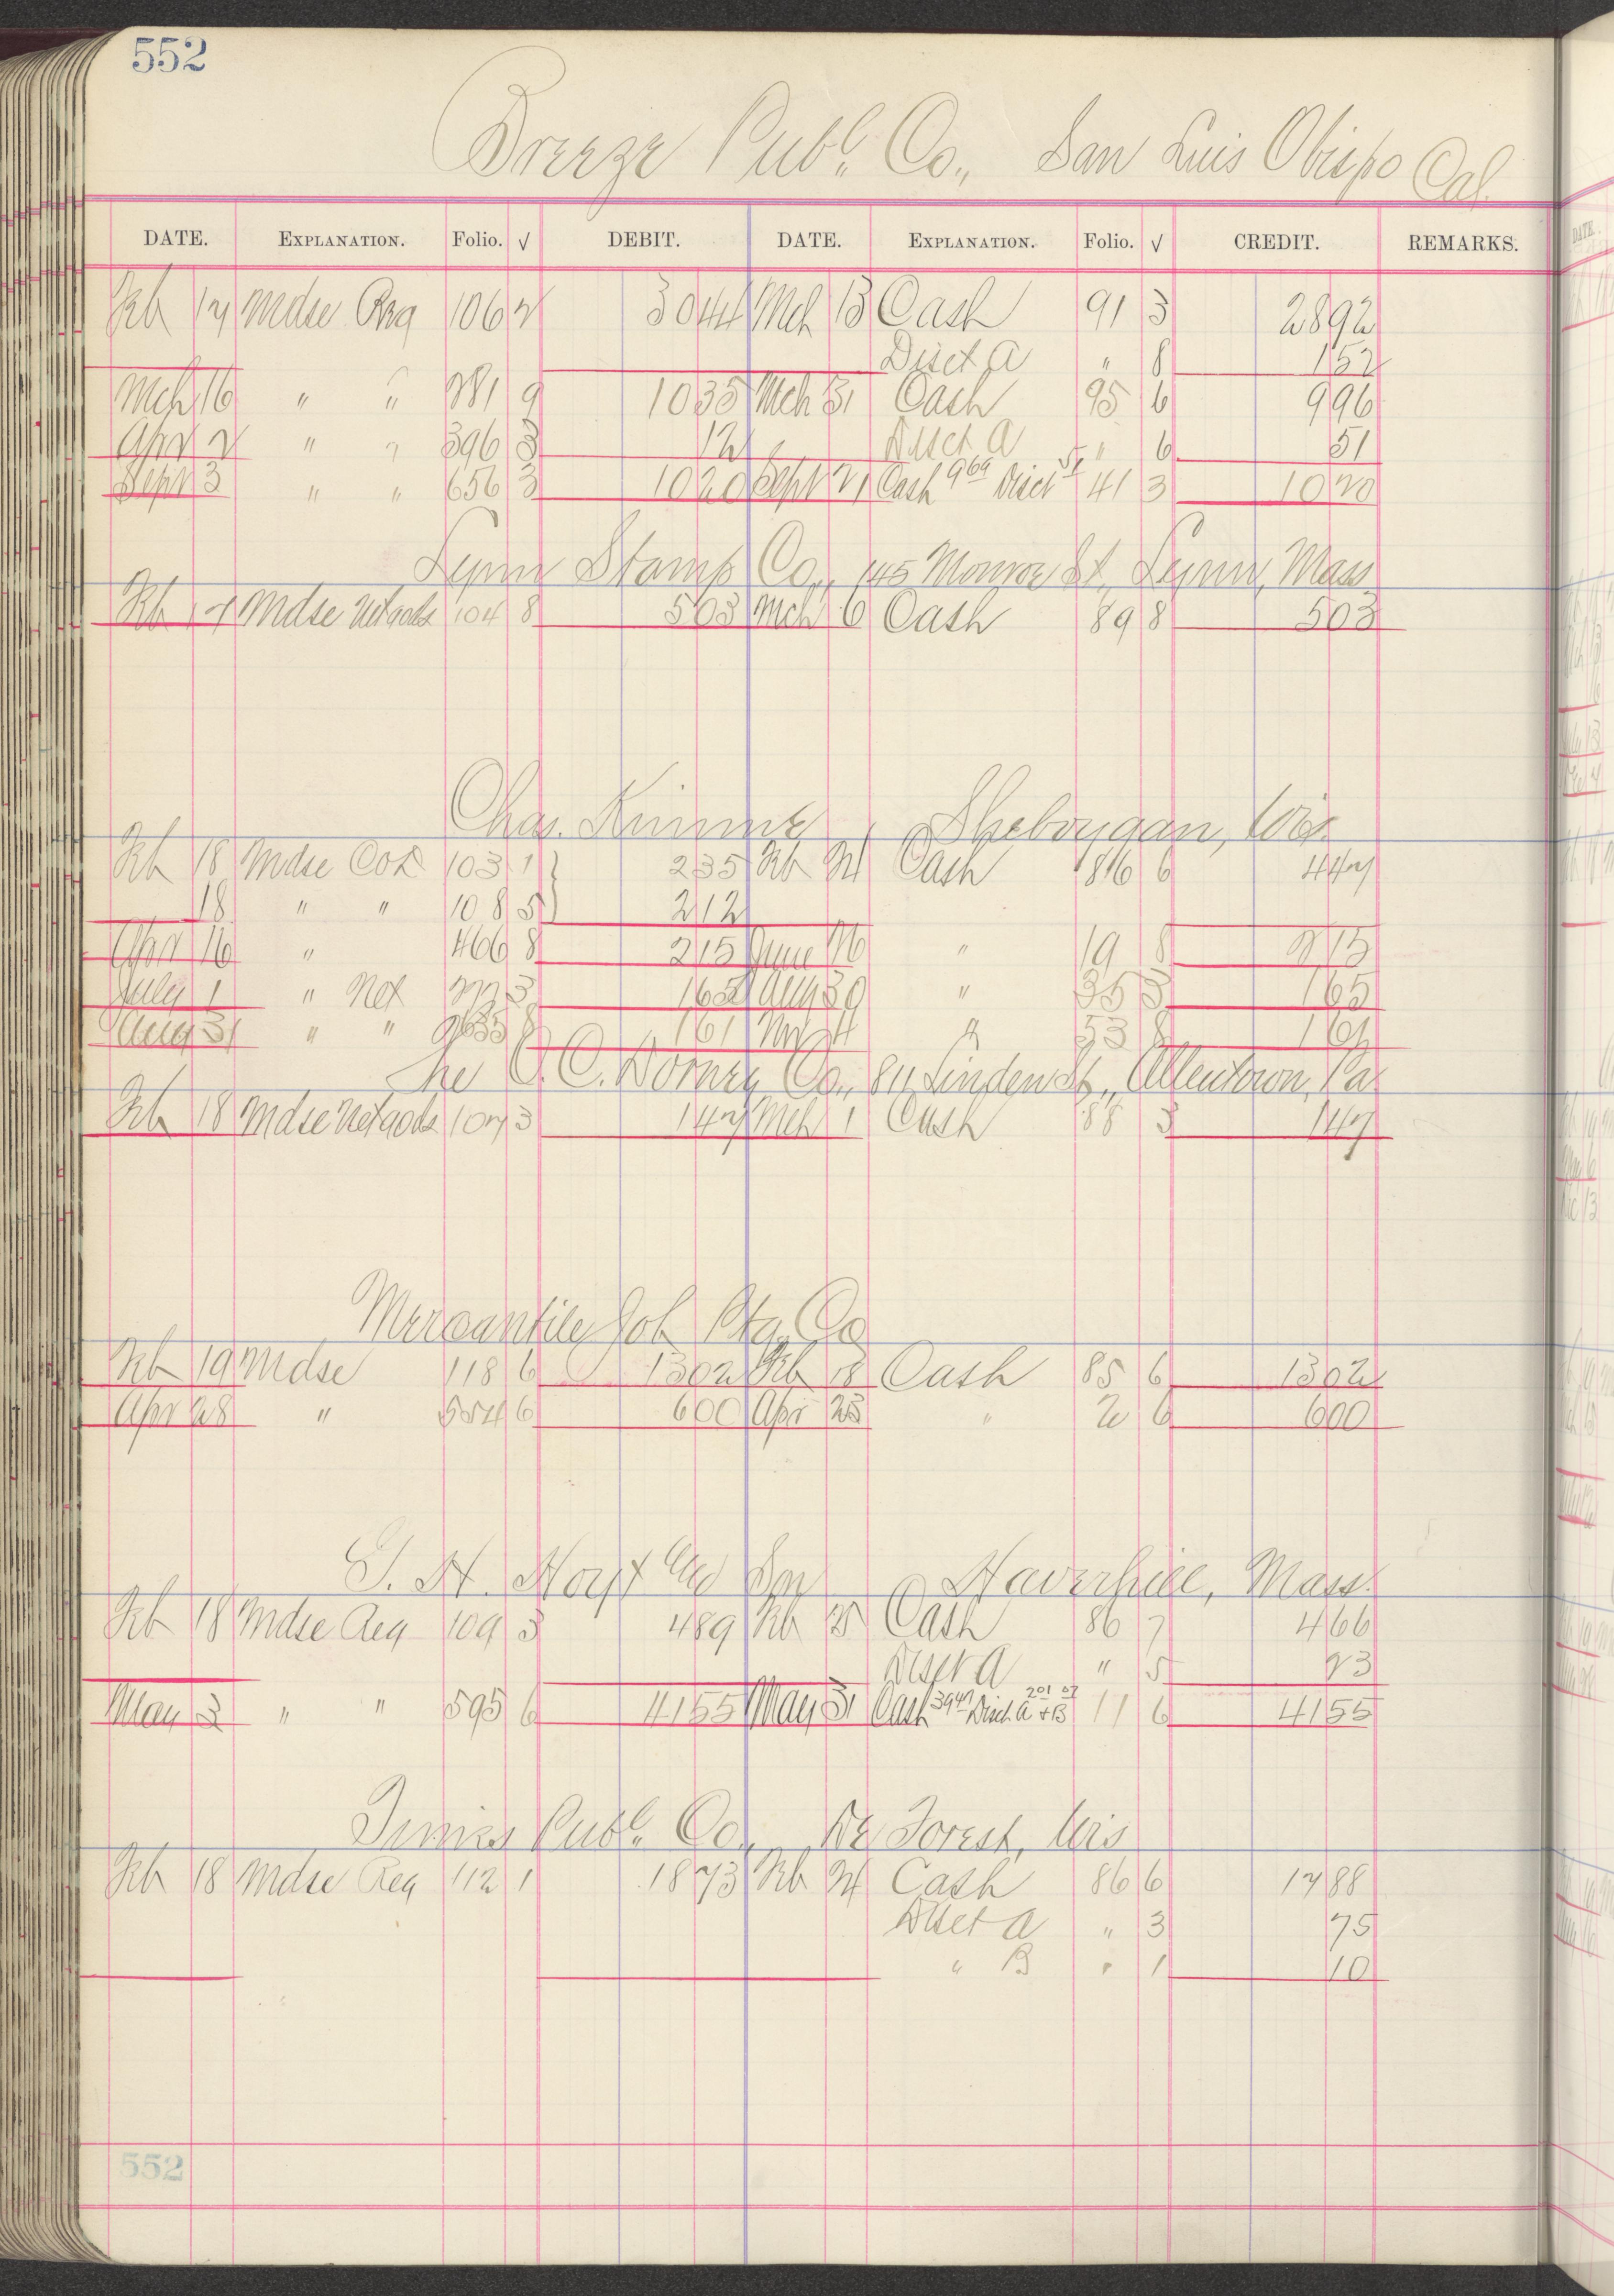 552
Breeze Publ. Co., San Luis Obispo Cal.
DATE. EXPLANATION. Folio. √ DEBIT. DATE. EXPLANATION. Folio. √ CREDIT. REMARKS.
Feb 17 Mdse Reg 106 2 3044 Mch 13 Cash 91 3 2892
Disct A " 8 152
Mch 16 " " 281 9 1035 Mch 31 Cash 95 6 996
Apr 2 " " 396 3 12 Disct A " 6 51
Sept 3 " " 656 3 1020 Sept 21 Cash 969 Disct 51 41 3 1020
Lynn Stamp Co., 145 Monroe St, Lynn, Mass
Feb 17 Mdse Net Gods 104 8 503 Mch 6 Cash 89 8 503
Chas. Kimme, Sheboygan, Wis.
Feb 18 Mdse 103 1 235 Feb 24 Cash 86 6 447
18 " " 108 5 212
Apr 16 " 466 8 215 June 26 " 19 8 215
July 1 " Net 3 165 Aug 30 " 35 3 165
Aug 31 " " 161 Nov 4 " 53 8 161
The C. C. Dorney Co., 811 Linden St., Allentown, Pa.
Feb 18 Mdse Net Gods 107 3 147 Mch 1 Cash 88 3 147
Mercantile Job Ptg. Co
Feb 19 Mdse 118 6 1302 Feb 18 Cash 85 6 1302
Apr 28 " 554 6 600 Apr 25 " 2 6 600
Haverhill, Mass.
Feb 18 Mdse Reg 109 3 489 Feb 25 Cash 86 7 466
Disct A " 5 23
May 3 " " 595 6 4155 May 31 Cash 3947 Disct A 201 + B 07 11 6 4155
Times Publ. Co., De Forest, Wis
Feb 18 Mdse Reg 112 1 1873 Feb 24 Cash 86 6 1788
Disct A " 3 75
" B " 1 10
552